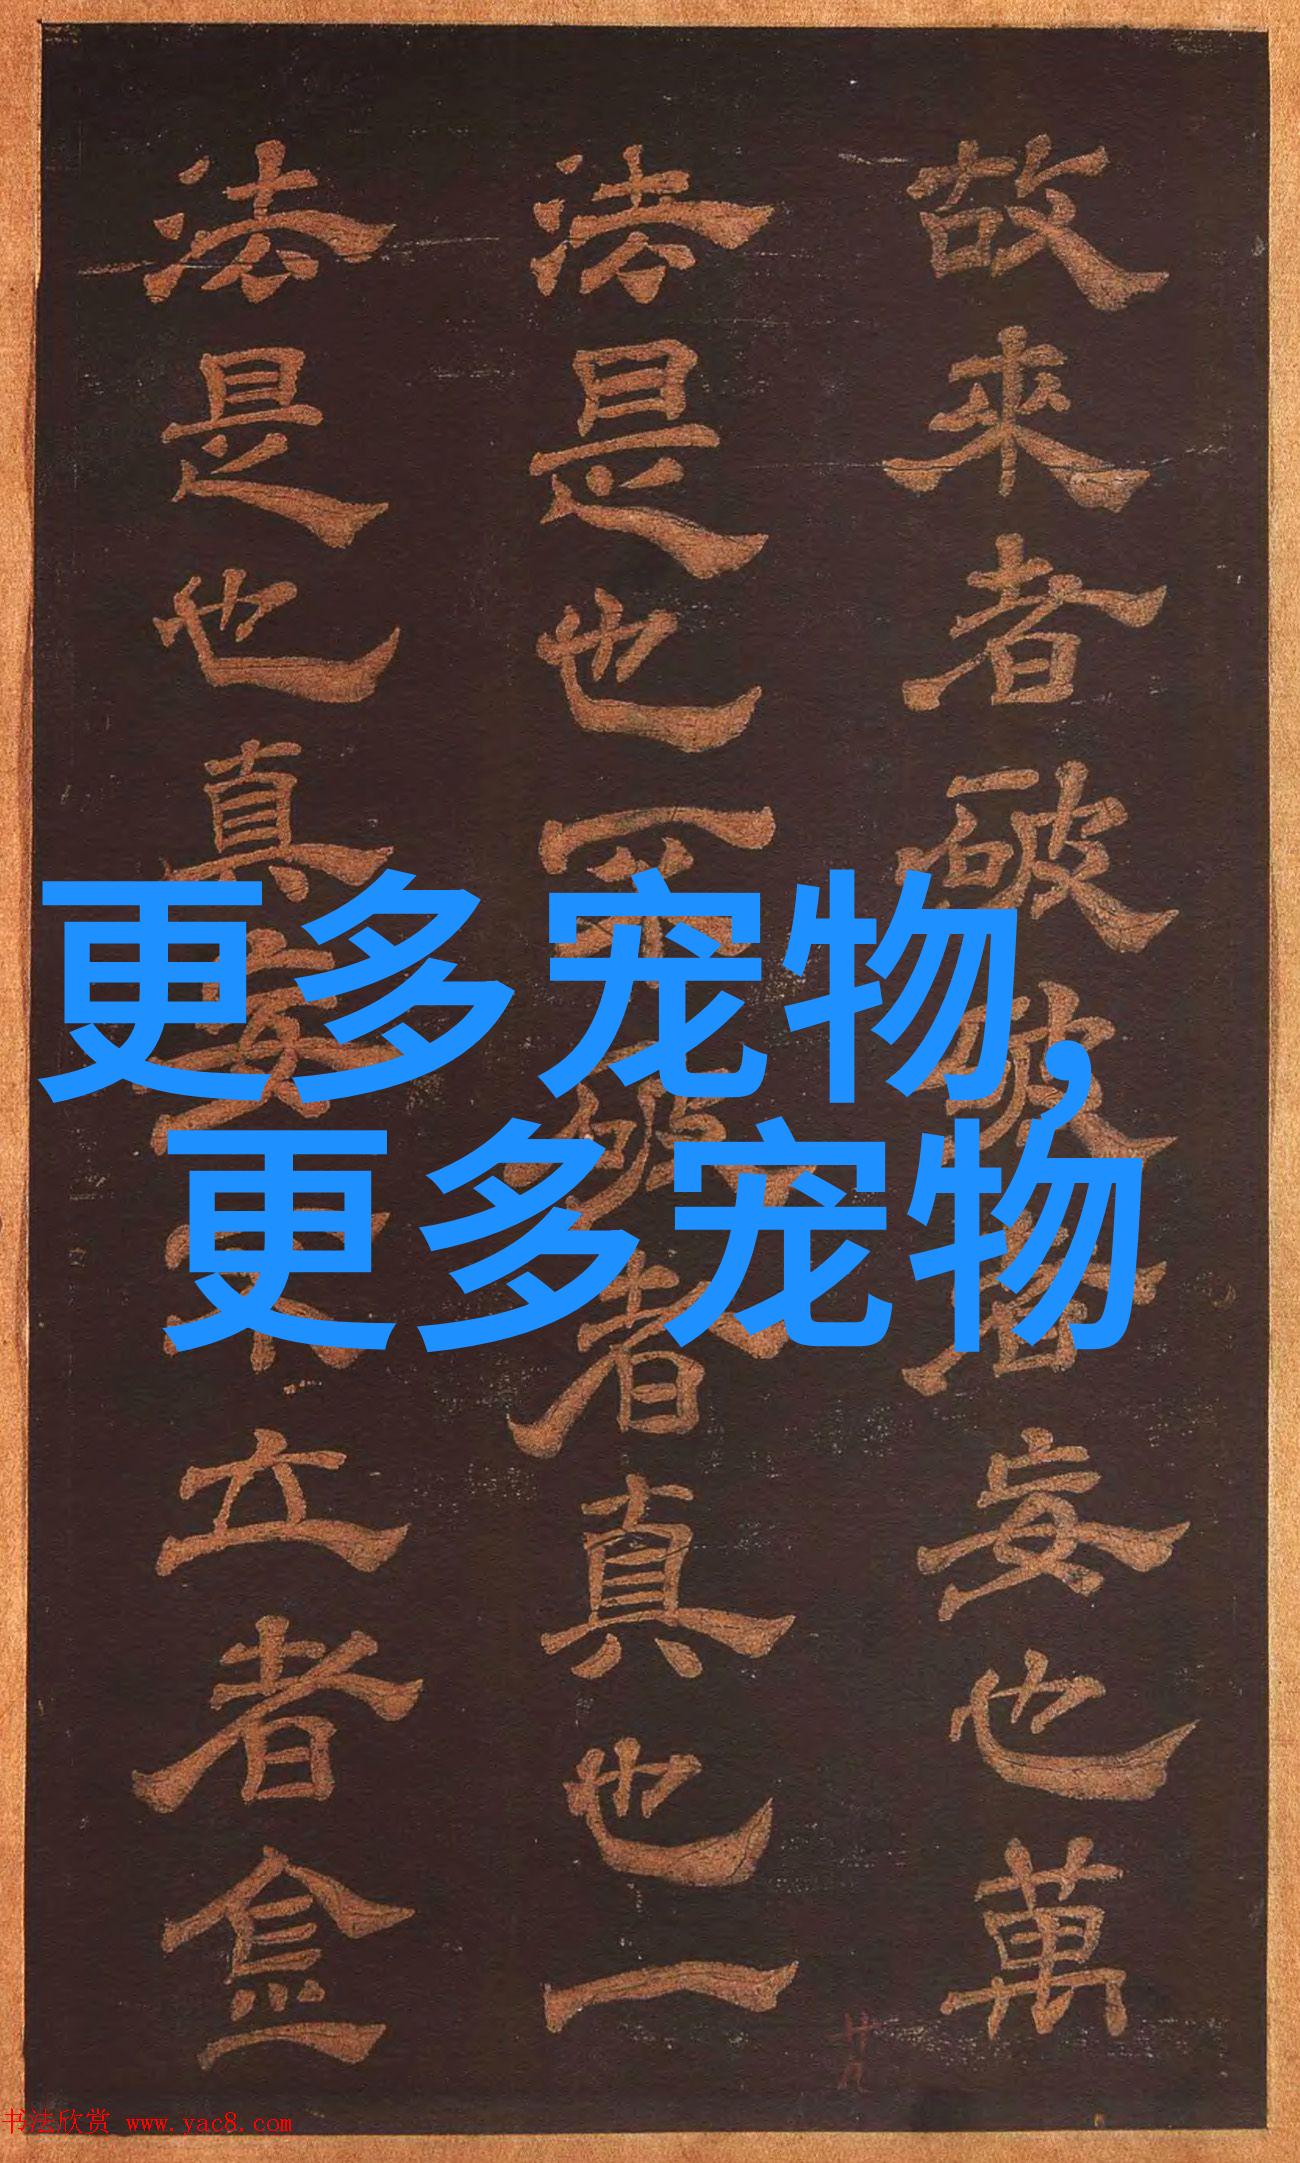 故來者破破者妄也萬
法是也不破者真也一
法是也真妄不立者
更多宠物,
更多宠物
书法欣赏 www.yac8.com